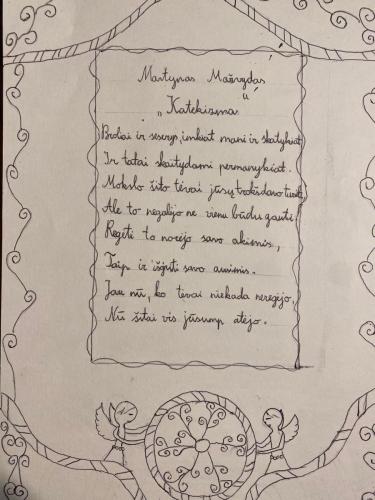 Martynas Mažvydas
„Katekizmas"
Broliai ir seserys, imkiat mani ir skaitykiat
Ir tatai skaitydami permanykiat.
Mokslo šito tėvai jūsų trokšdavo turėti,
Ale to negalėjo ne vienu būdu gauti.
Regėti to norėjo savo akimis,
Taip ir išgirsti savo ausimis.
Jau nū, ko tėvai niekada neregėjo,
Nū šitai vis jūsump atėjo.